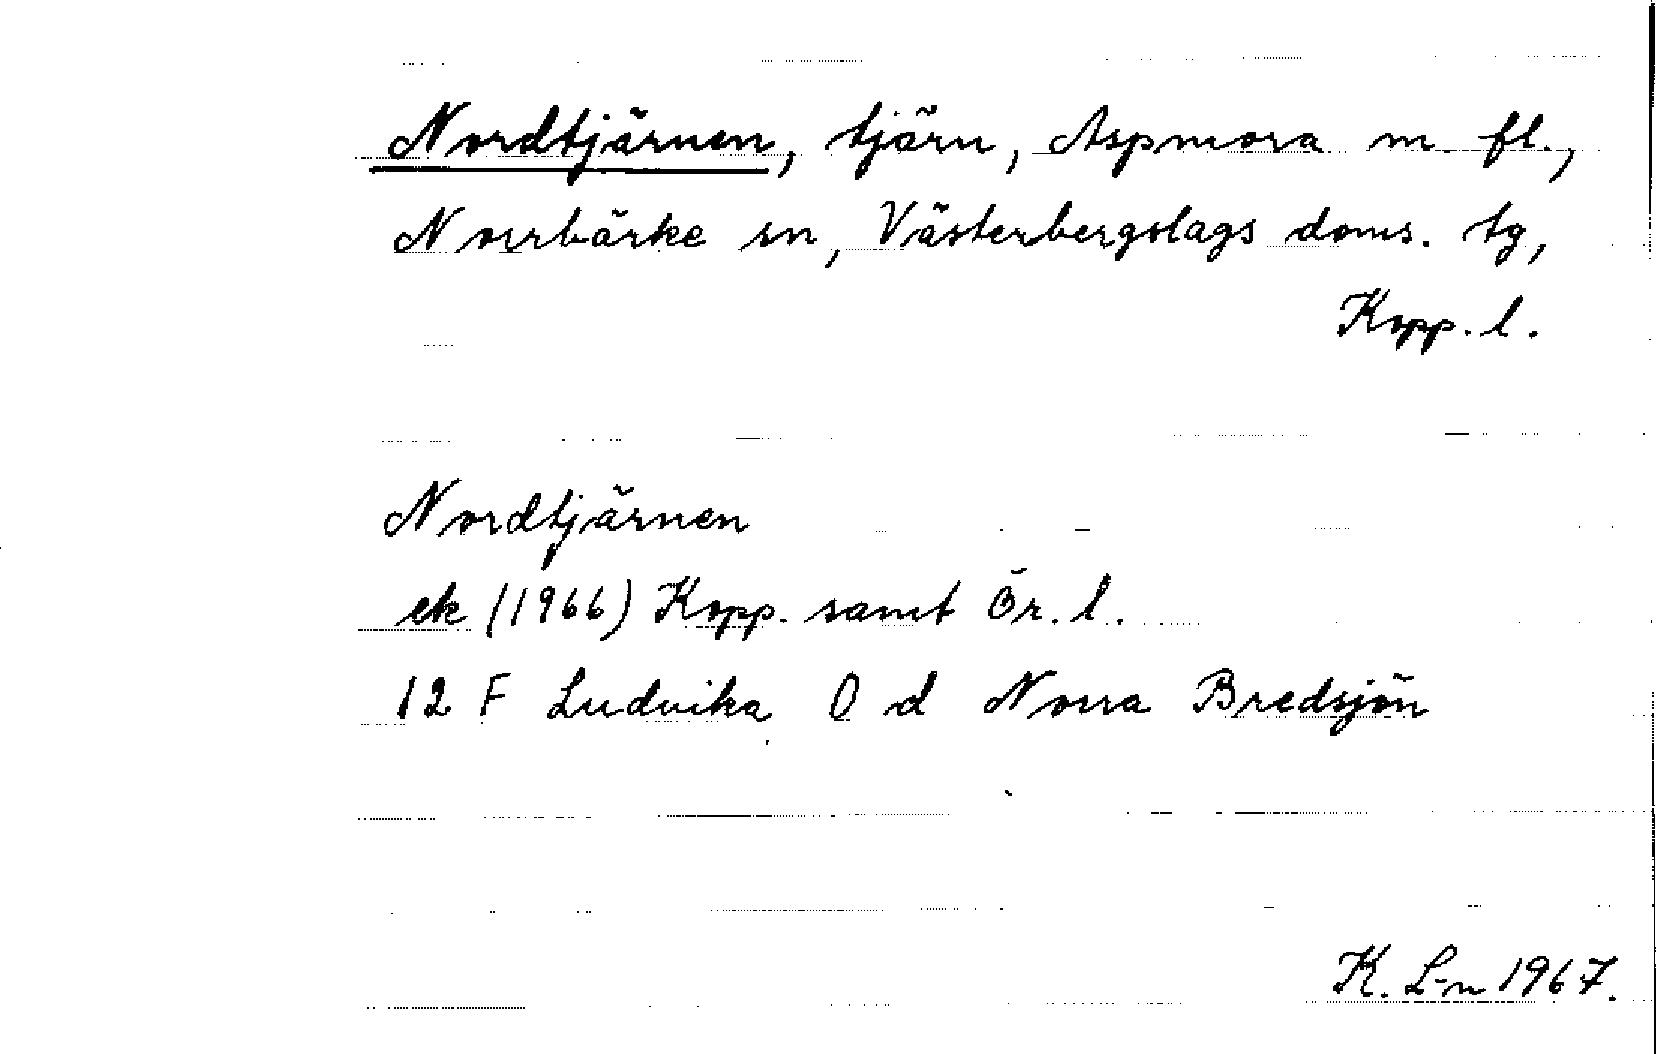 Nordtjärnen, tjärn, Aspmora m fl.,
Norrbärke sn, Västerbergslags doms. tg,
Kopp. l.
Nordtjärnen
ek (1966) Kopp. samt Ör. l.
12 F Ludvika 0 d Norra Bredsjön
K. L-n 1967.